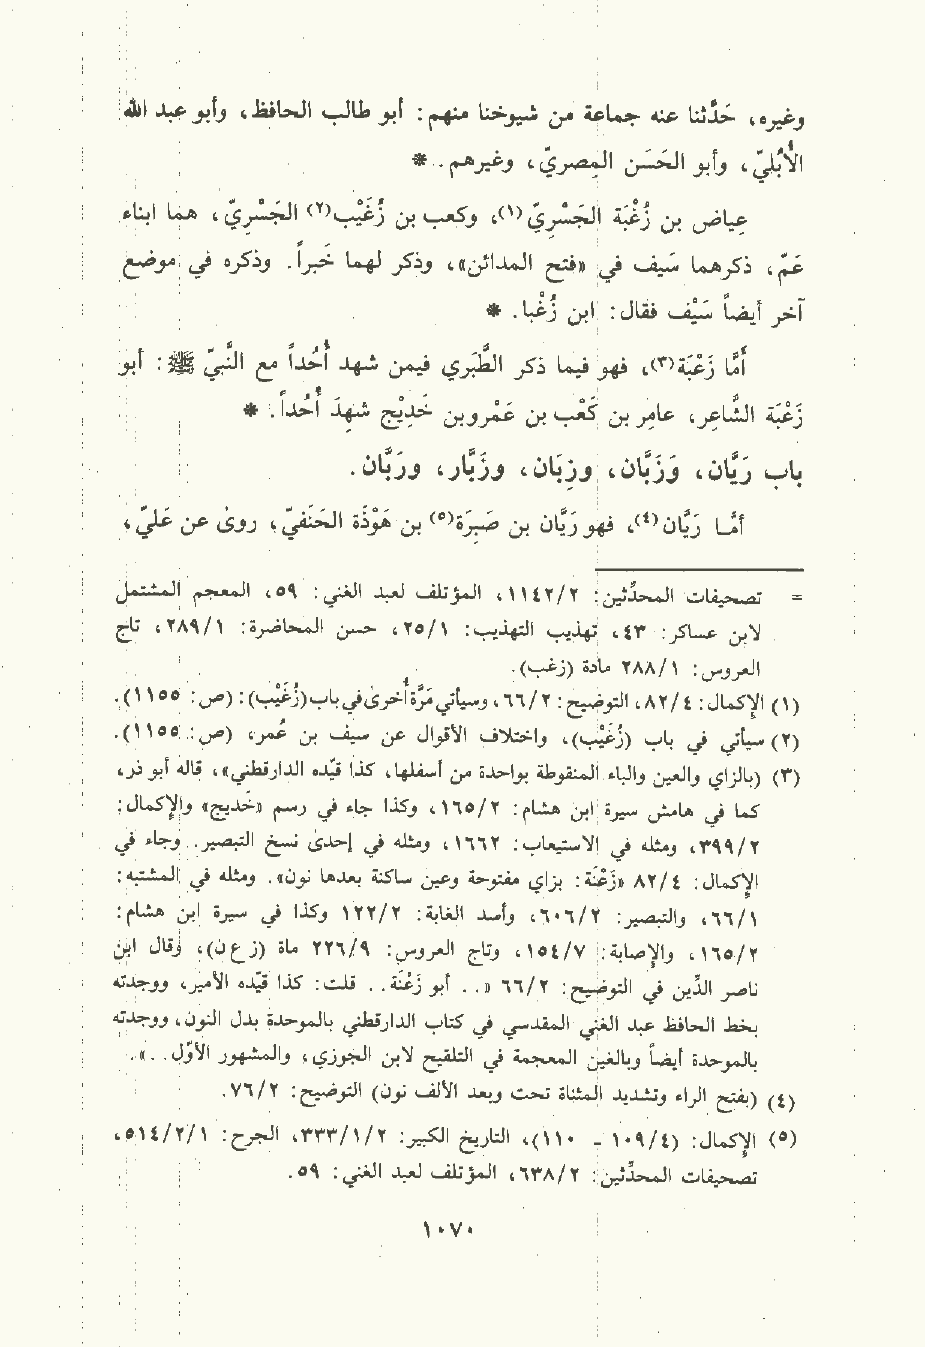 وغيره، حَدَّثنا عنه جماعة من شيوخنا منهم: أبو طالب الحافظ، وأبو عبد الله
الأُبُلّيّ، وأبو الحَسَن المصريّ، وغيرهم. *
عِياض بن زُغْبَة الجَسْرِيّ(١)، وكعب بن زُغَيْب(٢) الجَسْرِيّ، هما ابناء
عَمّ، ذكرهما سَيف في «فتح المدائن»، وذكر لهما خَبراً. وذكره في موضع
آخر أيضاً سَيْف فقال: ابن زُغْبا. *
أمَّا زَعْبَة(٣)، فهو فيما ذكر الطَّبَري فيمن شهد أُحُداً مع النَّبيّ ﷺ: أبو
زَعْبَة الشَّاعِر، عامِر بن كَعْب بن عَمْرو بن خَدِيْج شهِدَ أُحُداً. *
باب رَيَّان، وَزَبَّان، وزِبَان، وزَبَّار، ورَبَّان.
أمَّا رَيَّان(٤)، فهو رَيَّان بن صَبِرَة(٥) بن هَوْذَة الحَنَفيّ، روىٰ عن عَليّ،
= تصحيفات المحدِّثين: ١١٤٢/٢، المؤتلف لعبد الغني: ٥٩، المعجم المشتمل
لابن عساكر: ٤٣، تهذيب التهذيب: ٢٥/١، حسن المحاضرة: ٢٨٩/١، تاج
العروس: ٢٨٨/١ مادة (زغب).
(١) الإكمال: ٨٢/٤، التوضيح: ٦٦/٢، وسيأتي مَرَّة أخرىٰ في باب (زُغَيْب): (ص: ١١٥٥).
(٢) سيأتي في باب (زُغَيْب)، واختلاف الأقوال عن سيف بن عُمر، (ص: ١١٥٥).
(٣) (بالزاي والعين والباء المنقوطة بواحدة من أسفلها، كذا قيّده الدارقطني»، قاله أبو ذر،
كما في هامش سيرة ابن هشام: ١٦٥/٢، وكذا جاء في رسم «خَديج» والإكمال:
٣٩٩/٢، ومثله في الاستيعاب: ١٦٦٢، ومثله في إحدىٰ نسخ التبصير. وجاء في
الإكمال: ٨٢/٤ «زَعْنَة: بزاي مفتوحة وعين ساكنة بعدها نون». ومثله في المشتبه:
٦٦/١، والتبصير: ٦٠٦/٢، وأسد الغابة: ١٢٢/٢ وكذا في سيرة ابن هشام:
١٦٥/٢، والإصابة: ١٥٤/٧، وتاج العروس: ٢٢٦/٩ مادة (ز ع ن)، وقال ابن
ناصر الدِّين في التوضيح: ٦٦/٢ «.. أبو زَعْنَة.. قلت: كذا قيّده الأمير، ووجدته
بخط الحافظ عبد الغني المقدسي في كتاب الدارقطني بالموحدة بدل النون، ووجدته
بالموحدة أيضاً وبالغين المعجمة في التلقيح لابن الجوزي، والمشهور الأوّل..».
(٤) (بفتح الراء وتشديد المثناة تحت وبعد الألف نون) التوضيح: ٧٦/٢.
(٥) الإكمال: (١٠٩/٤ - ١١٠)، التاريخ الكبير: ٣٣٣/١/٢، الجرح: ٥١٤/٢/١،
تصحيفات المحدِّثين: ٦٣٨/٢، المؤتلف لعبد الغني: ٥٩.
١٠٧٠